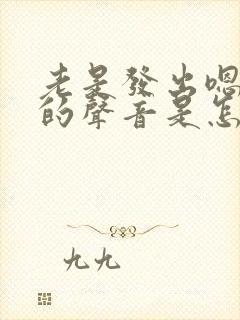 老是發出嗯
的聲音是怎
九九